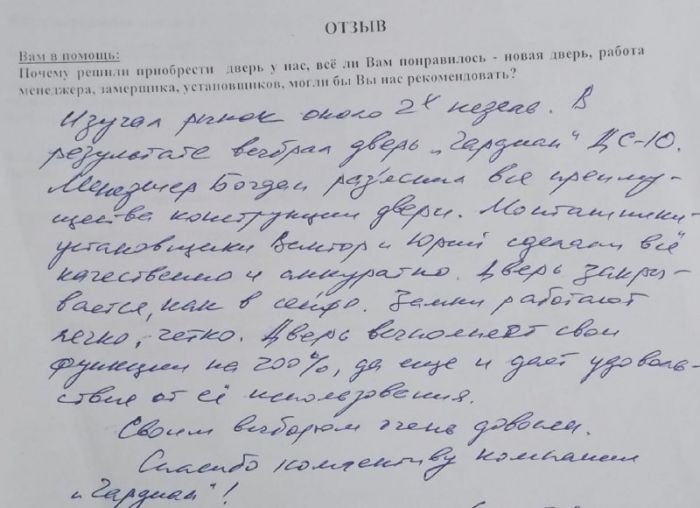 ОТЗЫВ
Вам в помощь:
Почему решили приобрести дверь у нас, всё ли Вам понравилось - новая дверь, работа
менеджера, замерщика, установщиков, могли бы Вы нас рекомендовать?
Изучал рынок около 2х недель. В
результате выбрал дверь „Гардиан“ ДС-10.
Менеджер Богдан раз'яснил все преиму-
щества конструкции двери. Монтажники-
установщики Виктор и Юрий сделали всё
качественно и аккуратно. Дверь закры-
вается, как в сейфе. Замки работают
легко, четко. Дверь выполняет свои
функции на 200%, да еще и дает удоволь-
ствие от её использования.
Своим выбором очень доволен.
Спасибо коллективу компании
„Гардиан“!